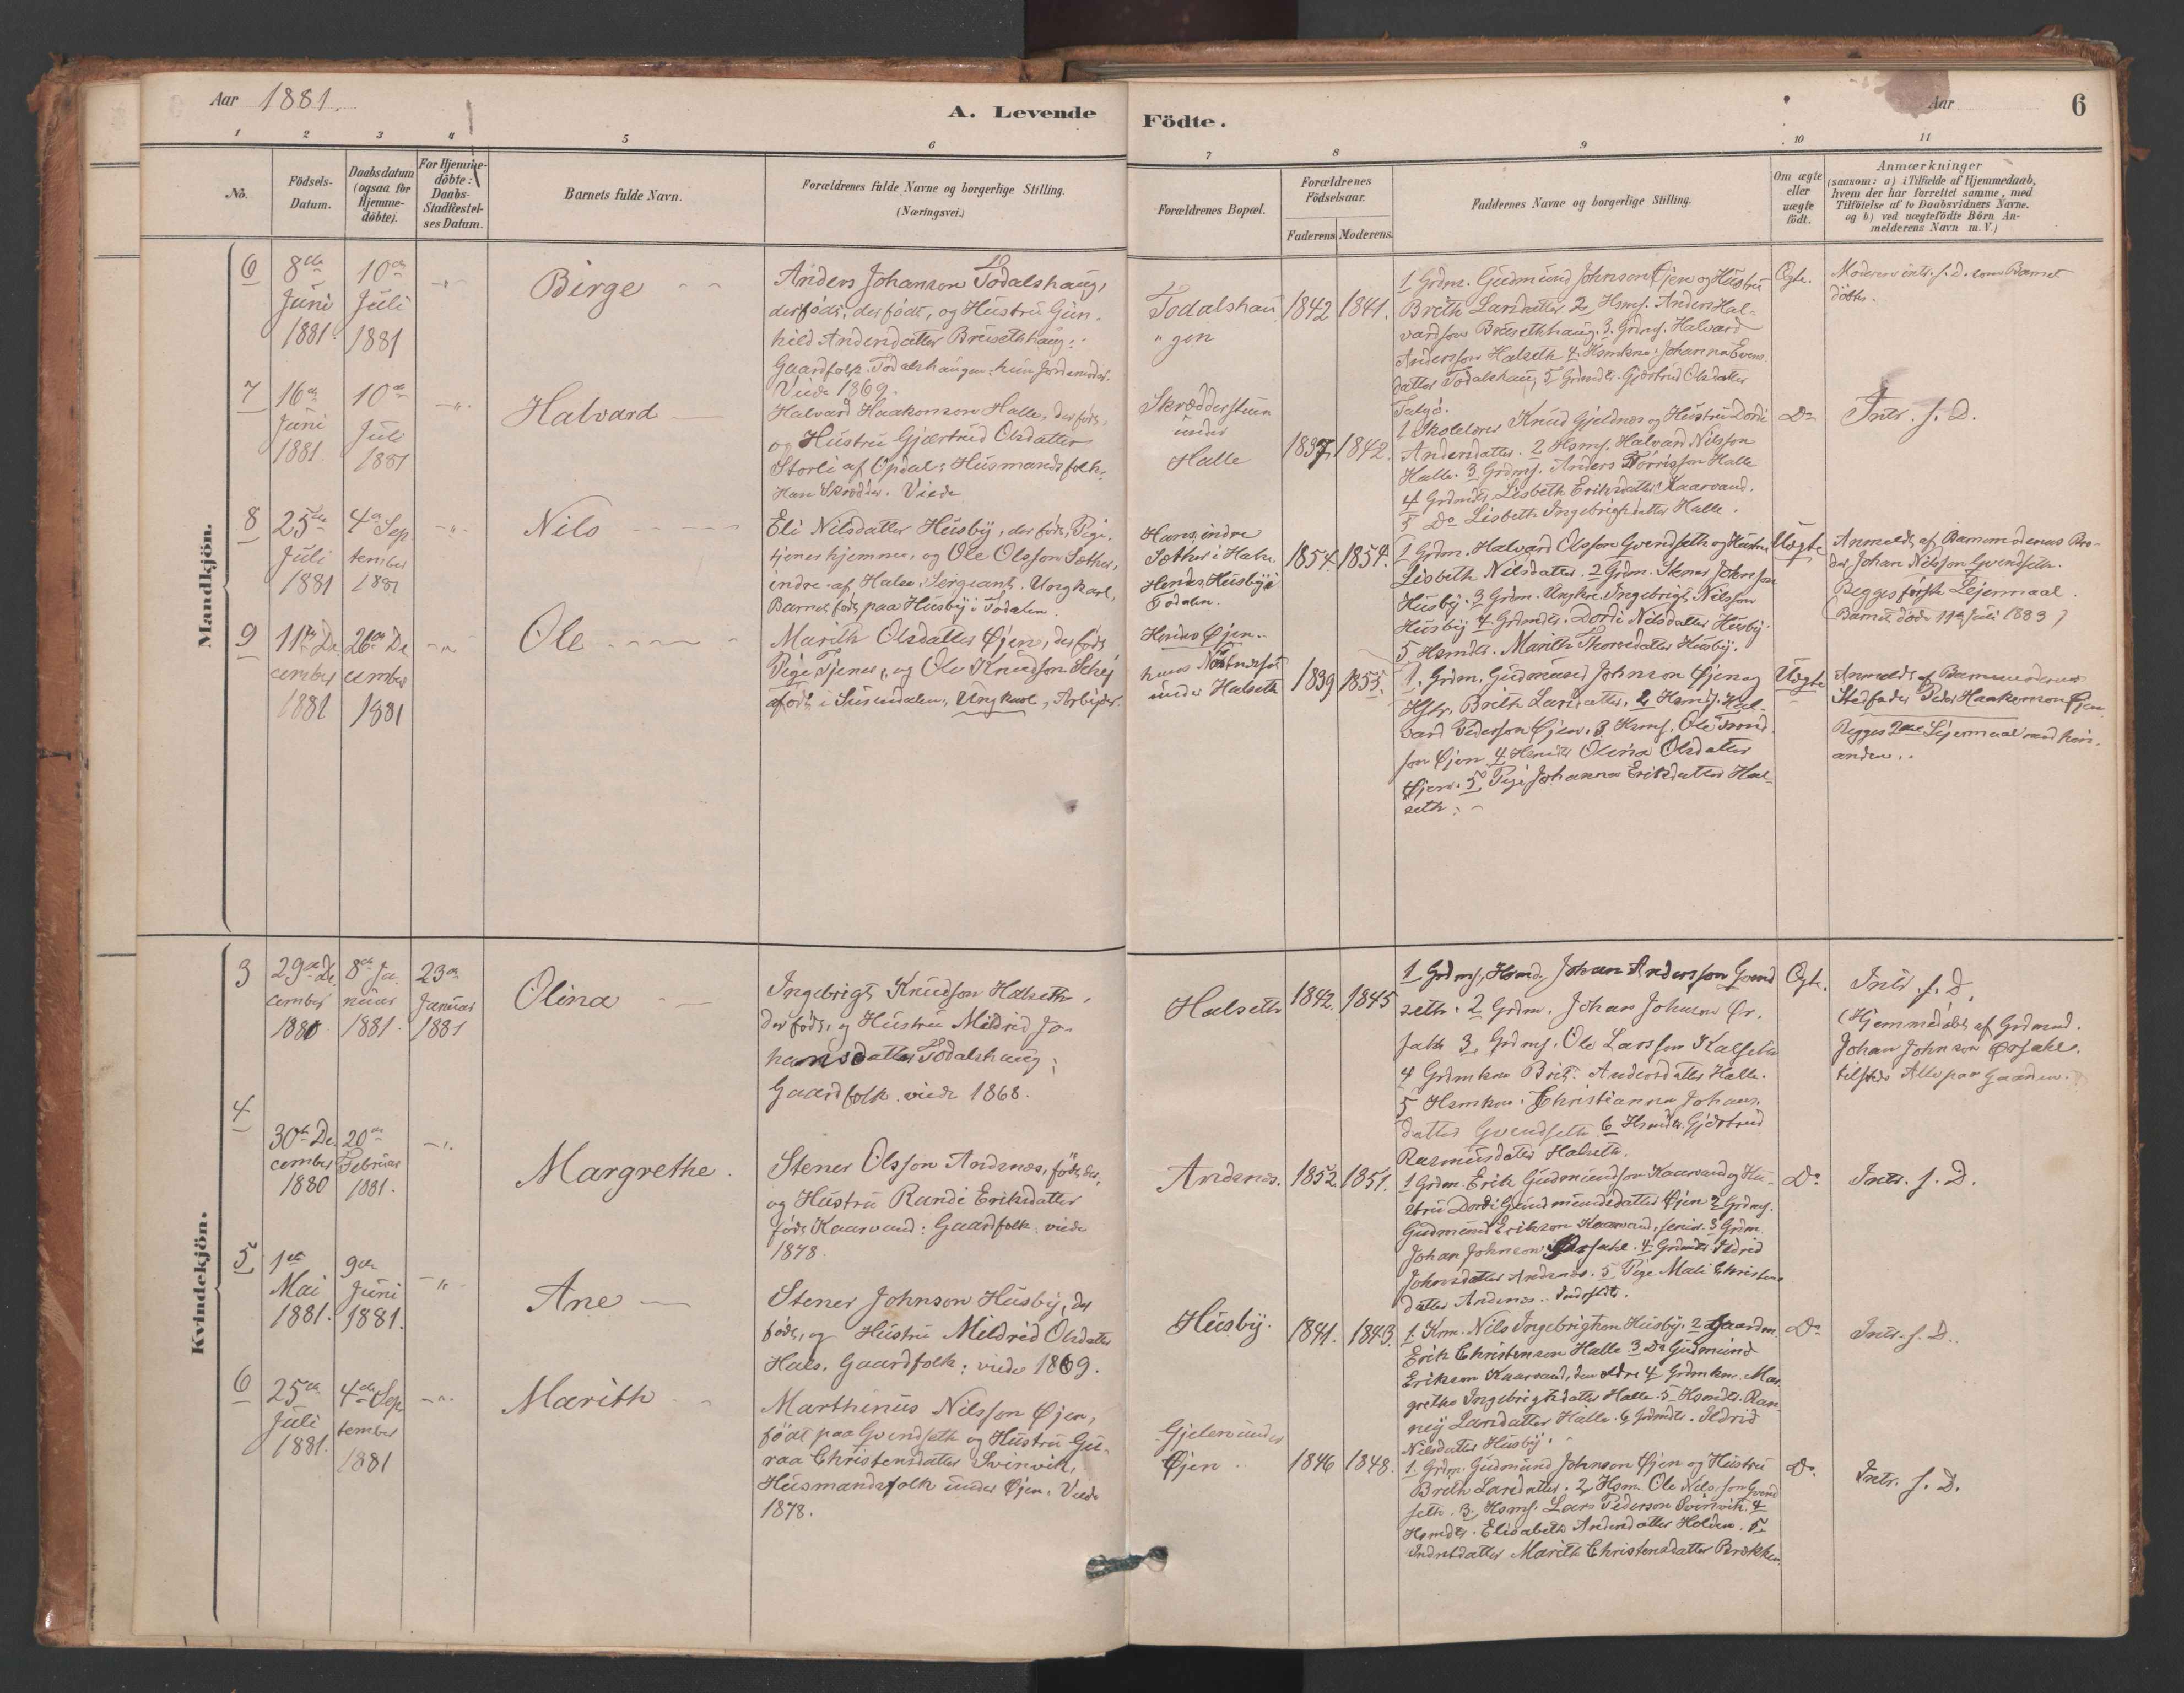 Aar 1881.
A. Levende
Födte.
Aar
6
1 2 3 4 5 6 7 8 9 10 11
No.
Födsels-
Datum.
Daabsdatum
(ogsaa for
Hjemme-
döbte).
For Hjemme-
döbte:
Daabs-
Stadfæstel-
ses Datum.
Barnets fulde Navn.
Forældrenes fulde Navne og borgerlige Stilling.
(Næringsvei.)
Forældrenes Bopæl.
Forældrenes
Födselsaar.
Faderens. Moderens.
Faddernes Navne og borgerlige Stilling.
Om ægte
eller
uægte
födt.
Anmærkninger
(saasom: a) i Tilfælde af Hjemmedaab,
hvem der har forrettet samme, med
Tilföielse af to Daabsvidners Navne.
og b) ved uægtefödte Börn An-
melderens Navn m. V.)
Mandkjön.
6
8de
Juni
1881.
10de
Juli
1881
Birge
Anders Johanson Todalshaug,
derfödt, og Hustru Gun-
hild Andersdatter Breisethhaug.
Gaardfolk Todalshaugen, hun Jordemoder.
Viede 1869.
Todalshau
gen
1842 1841.
1 Grdm. Gudmund Johnson Øjen og Hustru
Brith Larsdatter 2 Hsms. Anders Hal-
vardson Breisethhaug. 3. Grdms. Halvard
Andersson Halseth 4. Hsmkne. Johanna Evens-
datter Todalshaug, 5 Grdmdtr. Gjertrud Olsdatter
Ægte.
Moderen intr. s. d. som Barnet
döbtes.
7
16de
Juni
1881.
10de
Juli
1881
Halvard
Halvard Haakonson Halle, derföds,
og Hustru Gjærtrud Olsdatter
Storli af Opdal: Husmandsfolk.
Han Skrædder. Viede
Skrædderstuen
under
Halle
1837 1842.
1 Skolelærer Knud Gjeldnes og Hustru Dordi
Andersdatter. 2 Hsms. Halvard Nilsson
Halle. 3 Grdms. Anders Torrisson Halle
4 Grdmdtr. Lisbeth Eriksdatter Kaarvand.
5 Do Lisbeth Ingebrigtsdatter Halle.
Do
Intr. s. D.
8
25de
Juli
1881
4de Sep
tember
1881
Nils
Eli Nilsdatter Husby, der föds, Pige,
tjener hjemme, og Ole Olsson Sæther,
indre af Halse: Sergeant. Ungkarl,
Barnet föds paa Husby i Todalen.
Hans, indre
Sæther i Halse
Hendes, Husby i
Todalen.
1854. 1854.
1 Grdm. Halvard Olsson Gvendseth og Hustru
Lisbeth Nilsdatter. 2 Grdm. Stener Johnson
Husby. 3 Grdm. Ungkrl. Ingebrigt Nilsson
Husby 4 Grdmdtr. Dordi Nilsdatter Husby.
5 Hsmdtr. Marith Thoresdatter Husby.
Uægte
Anmeldt af Barnemoderens Bro-
der, Johan Nilsson Gvendseth.
Begges förste Lejermaal.
(Barnet döde 11te Juli 1883)
9
11te De
cember
1881
26de De
cember
1881
Ole
Marith Olsdatter Øjen, derföds
Pige Tjener, og Ole Knudson Skej
afödt i Surendalen, Ungkarl, Arbejder.
Hendes Øjen.
under Halseth
1839 1853.
1. Grdm. Gudmund Johnson Øjen og
Hstr. Brith Larsdatter. 2 Hsmds. Hal-
vard Pederson Øjen. 3 Hsms. Ole Svend
son Øjen 4 Hsmdtr Olina Olsdatter
Øjen. 5. Pige Johanna Eriksdatter Hal-
seth.
Uægte
Anmeldt af Barnemoderens
Stedfader Peder Haakonson Øjen.
Begges 2det Lejermaal med hin-
anden.
Kvindekjön.
3
29de De
cember
1880
8de Ja
nuar
1881.
23de
Januar
1881
Olina
Ingebrigt Knudson Halseth,
der föds, og Hustru Mildrid Jo-
hansdatter Todalshaug;
Gaardfolk. viede 1868.
Halseth
1842. 1845
1 Grdms, Hsmd, Johan Andersson Gvend
seth. 2 Grdm. Johan Johnson Ør-
sahl 3. Grdms. Ole Larsson Halseth
4 Grdmkne Brit Andersdatter Halle.
5 Hsmkne. Christianna Johans-
datter Gvendseth 6 Hsmdtr. Gjertrud
Rasmusdatter Halseth.
Ægte.
Intr. s. D.
(Hjemmedöbt af Grdmand.
Johan Johnson Ørsahl.
tilstede Alle paa Gaarden.)
4
30te De
cember
1880
20de
Februar
1881.
Margrethe.
Stener Olsson Andsnes, föds der,
og Hustru Randi Eriksdatter
föds Kaarvand: Gaardfolk. viede
1878.
Andsnes.
1852 1851.
1 Grdm. Erik Gudmundson Kaarvand og Hu-
stru Dordi Gudmundsdatter Øjen 2 Grdms.
Gudmund Erikson Kaarvand, senior. 3 Grdm.
Johan Johnson Ørsahl. 4 Grdmdtr. Ildrid
Johnsdatter Andsnes. 5 Pige Mali Christens
datter Andsnes.
Do
Intr. s. D.
5
1ste
Mai
1881.
9de
Juni
1881.
Ane
Stener Johnson Husby, der
föds, og Hustru Mildrid Olsdatter
Hals, Gaardfolk: viede 1869.
Husby.
1841. 1843.
1. Krm. Nils Ingebrigtson Husby. 2 Gaardm.
Erik Christenson Halle 3 Do Gudmund
Erikson Kaarvand, den eldre 4 Grdmkne. Mar
grethe Ingebrigtsdatter Halle. 5 Hsmdtr. Ran-
nei Larsdatter Halle. 6 Grdmdtr. Ildrid
Nilsdatter Husby.
Do
Intr. s. D.
6
25de
Juli
1881.
4de Sep
tember
1881
Marith
Marthinus Nilsson Øjen,
födt paa Gvendseth og Hustru Gu-
raa Christensdatter Svinvik,
Husmandsfolk under Øjen. Viede
1878.
Gjelen under
Øjen
1846 1848.
1. Grdm. Gudmund Johnson Øjen og Hustru
Brith Larsdatter. 2 Hsm. Ole Nilsson Gvend
seth. 3. Hsms. Lars Pederson Svinvik. 4
Hsmdtr. Elisabeth Andersdatter Holden. 5
Marith Christensdatter Brekken
Do.
Intr. s. D.